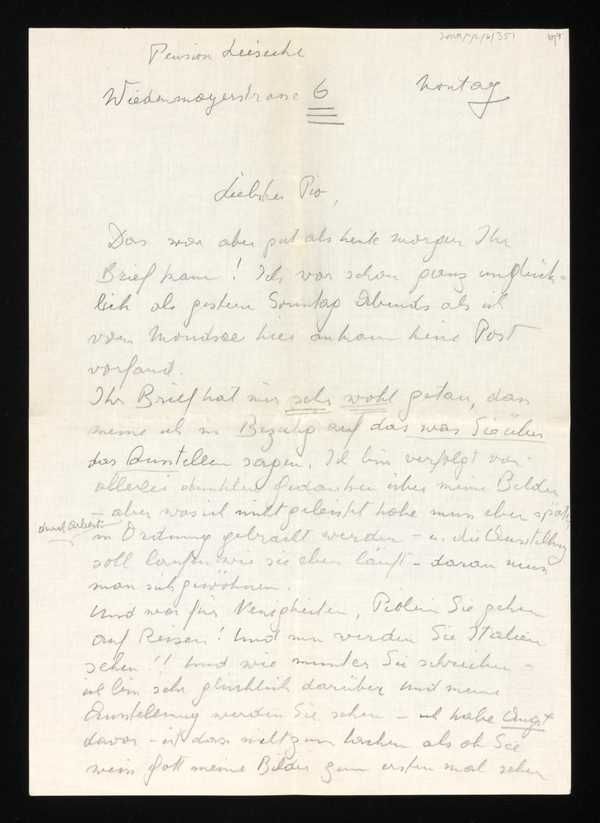 Pension
Wiedenmayerstrasse 6 Montag
Liebster Pio,
Das war aber gut als heute morgen Ihr
Brief kam! Ich war schon ganz unglück-
lich als gestern Sonntag Abends als ich
vom Mondsee hier ankam keine Post
vorfand.
Ihr Brief hat mir sehr wohl getan, das
meine ich in Bezug auf das was Sie über
das Ausstellen sagen. Ich bin verfolgt von
allerlei dunklen Gedanken über meine Bilder
– aber was ich nicht geleistet habe muss eben später
durch Arbeit
in Ordnung gebracht werden – u. die Ausstellung
soll laufen wie sie eben läuft – daran muss
man sich gewöhnen.
Und was für Neuigkeiten, Piolein Sie gehen
auf Reisen! Und nun werden Sie Italien
sehen!! Und wie munter Sie schreiben –
ich bin sehr glücklich darüber und meine
Ausstellung werden Sie sehen – ich habe Angst
davor – ist das nicht zum lachen als ob Sie
weiss Gott meine Bilder zum ersten mal sehen